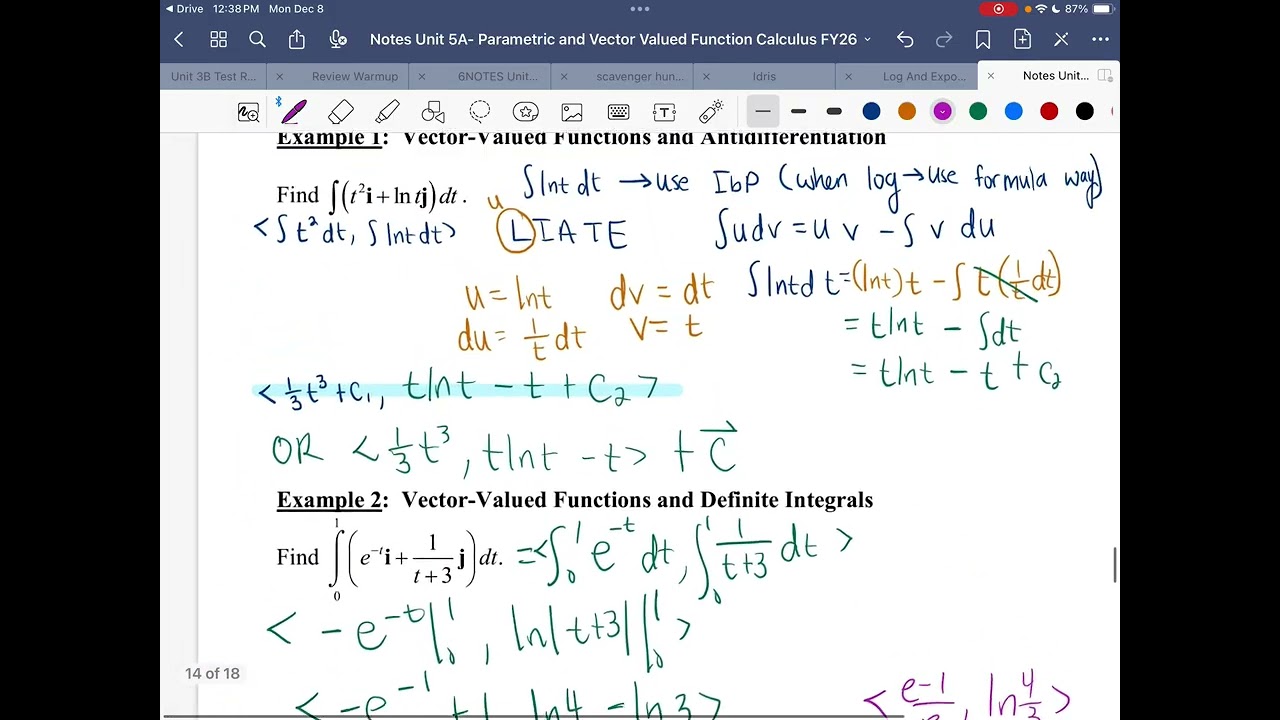 Drive 12:38 PM Mon Dec 8 87%
Notes Unit 5A- Parametric and Vector Valued Function Calculus FY26
Unit 3B Test R... Review Warmup 6NOTES Unit... scavenger hun... Idris Log And Expo... Notes Unit...
Example 1: Vector-Valued Functions and Antidifferentiation
Find ∫(t²i + ln tj) dt.
∫lnt dt → use IbP (when log → use formula way)
<∫t² dt, ∫lnt dt>
u
LIATE
∫udv = u v - ∫ v du
u = lnt dv = dt
∫lnt dt = (lnt)t - ∫ t(1/t dt)
du = 1/t dt v = t
= tlnt - ∫dt
= tlnt - t + C₂
<1/3 t³ + C₁, tlnt - t + C₂>
OR <1/3 t³, tlnt - t> + C⃗
Example 2: Vector-Valued Functions and Definite Integrals
Find ∫₀¹(e⁻ᵗi + 1/(t+3) j) dt. = <∫₀¹ e⁻ᵗ dt, ∫₀¹ 1/(t+3) dt>
< -e⁻ᵗ|₀¹, ln|t+3||₀¹ >
14 of 18
< -e⁻¹ + 1, ln4 - ln3 >
< e-1/e, ln 4/3 >